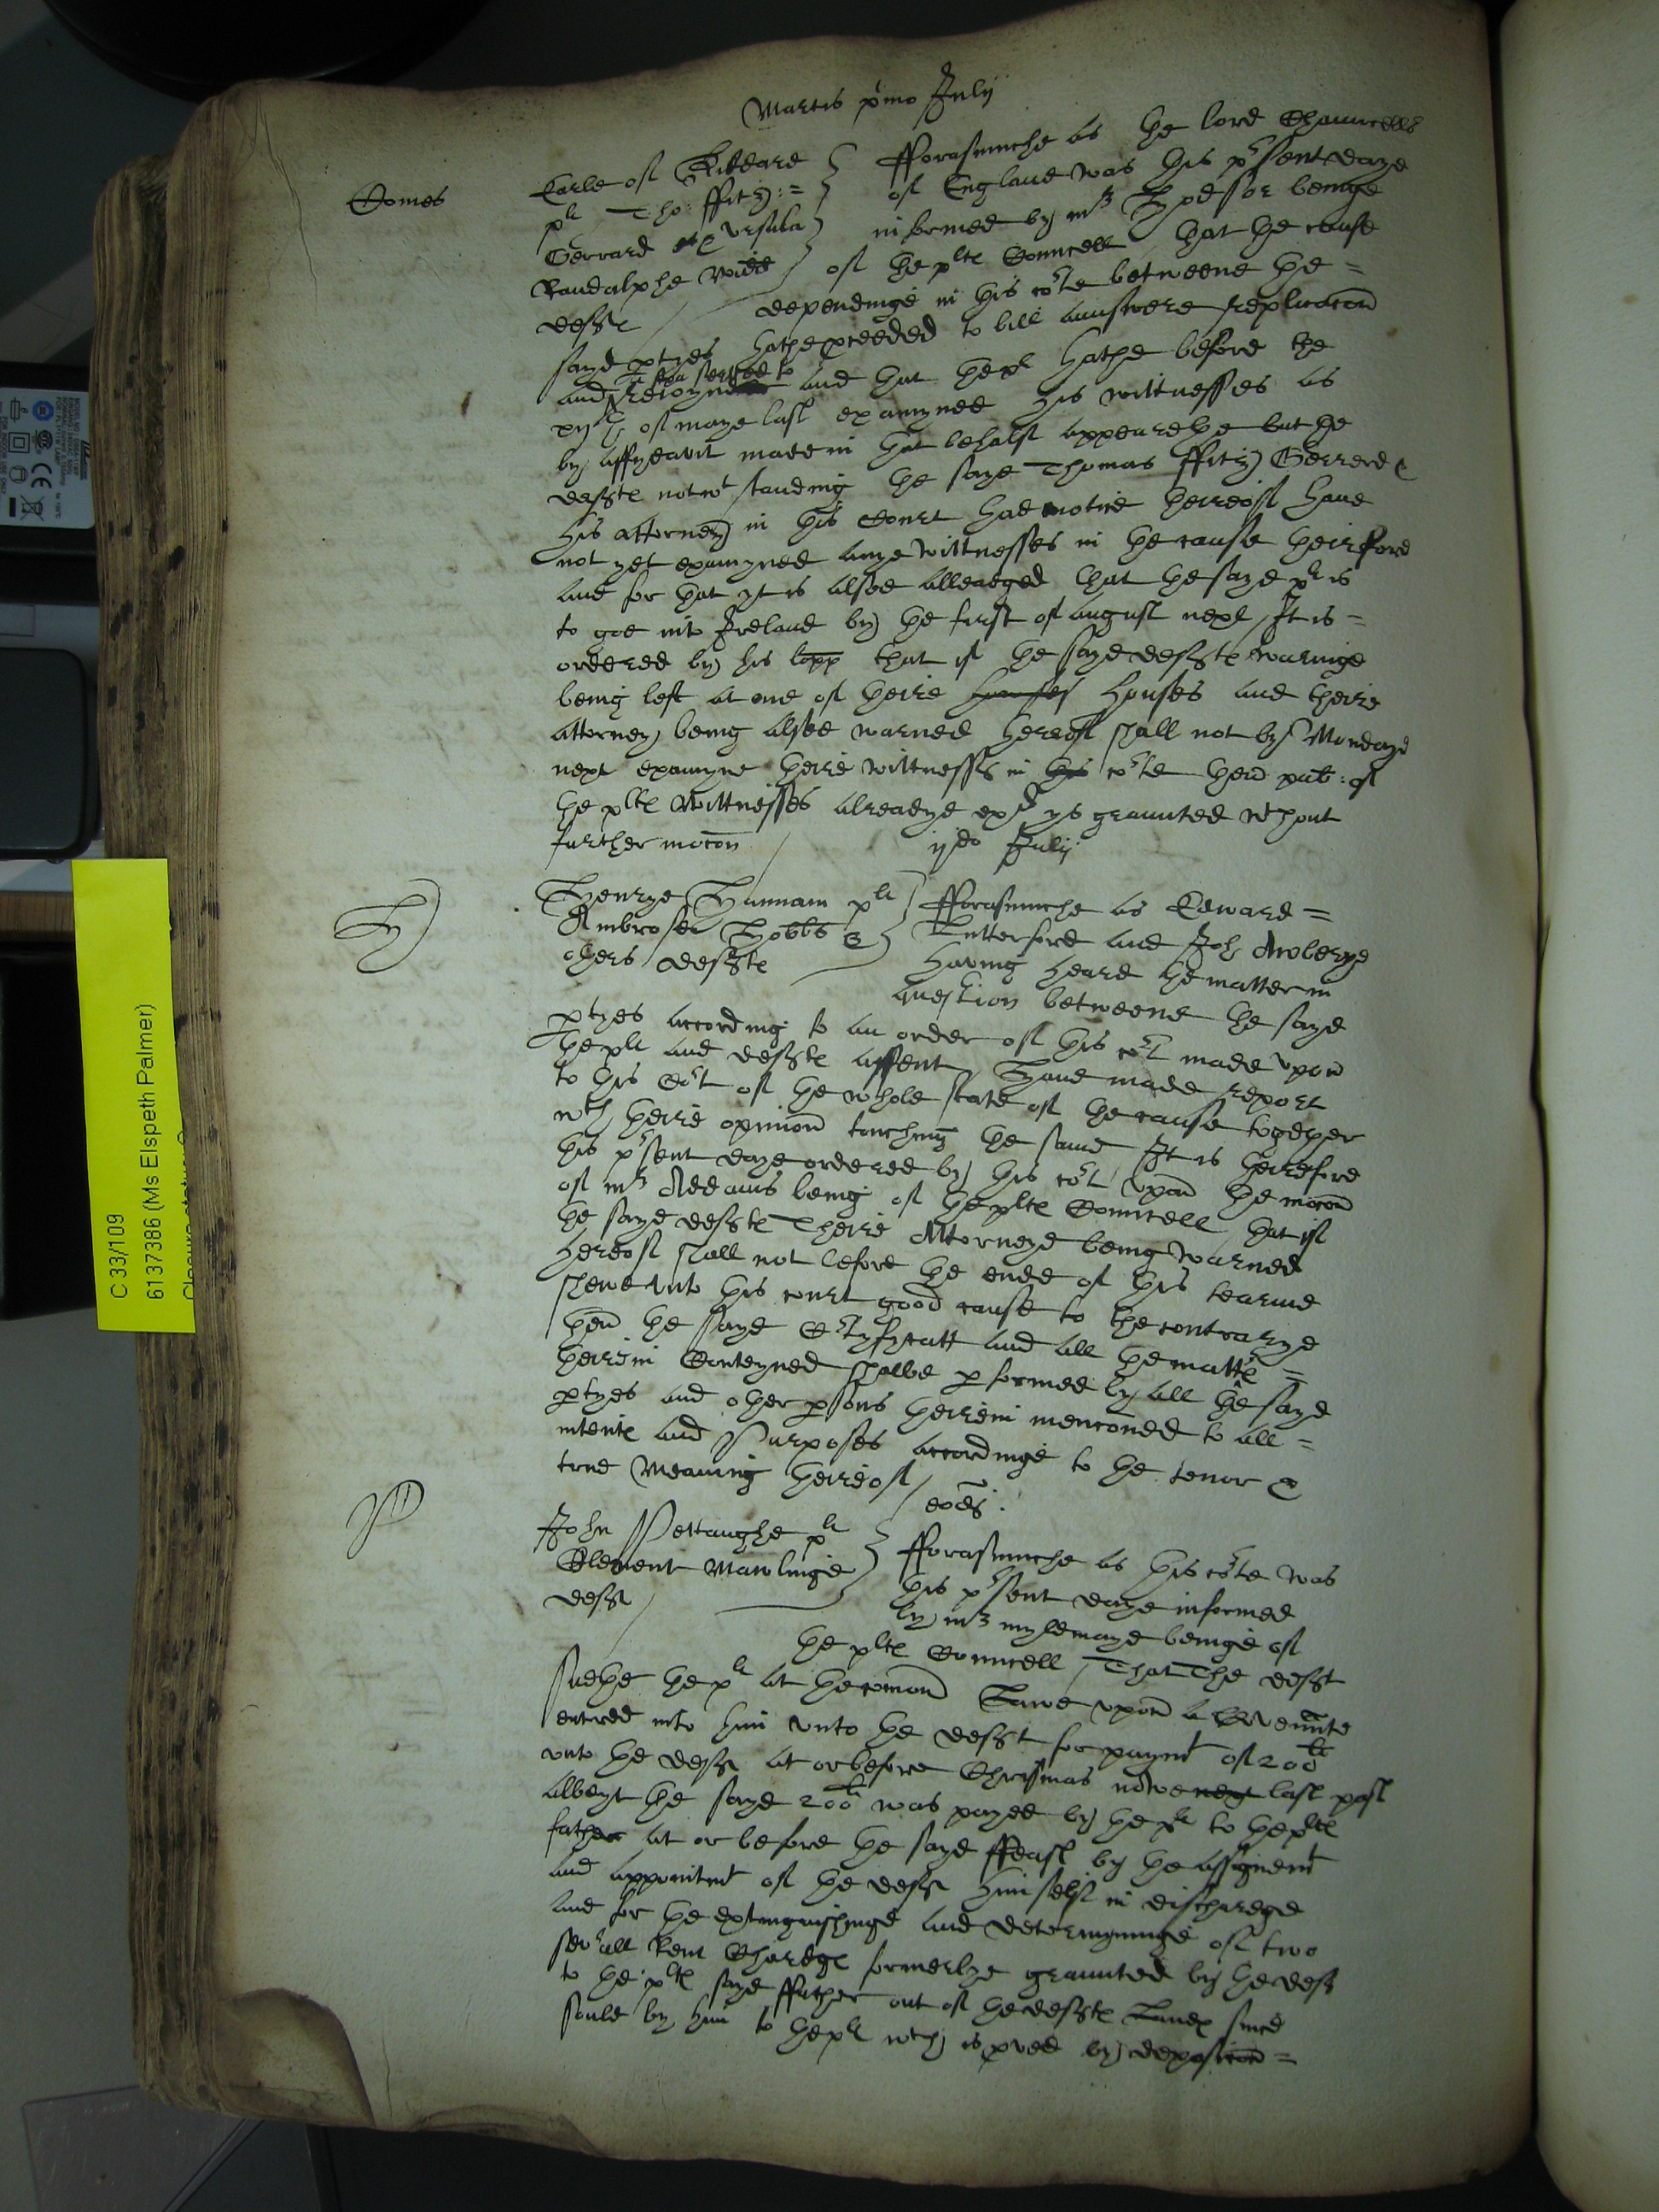 Martis primo Julij
Comes
Earle of Kildare
plt Tho: ffitz:=
Gerrard et Ursula
Randalphe widd
deftes
Fforasmuche as the lord Chauncello
of England was this present daye
informed by mr Typessor beinge
of the pltes Councell that the cause
dependinge in this cote betweene the =
sayd ptyes hathe pceeded to bill aunswere replicacon
and rejoyne and that the plt hathe before the
xvth of maye last examyned his wittnesses as
by affydavit made in that behalf appearethe but the
deftes notwtstanding the sayd Thomas ffitz Gerrerd &
his attorney in this Court had notice heireof have
not yet examyned anye wittnesses in the cause theirfore
and for that yt is alsoe alleadged that the sayd plt is
to goe into Ireland by the first of august next / It is =
ordered by his lopp that if the sayd deftes warninge
being left at one of theire howses houses and theire
attorney being alsoe warned hereof shall not by Mondaye
next examyne theire wittnesses in this cote then pub: of
the pltes wittnesses alreadye exd ys graunted wthout
further mocon /
ijdo Julij
H
Henrye Hannam plt
Ambrose Hobbs &
others deftes
Fforasmuche as Edward =
Rutterford and John Awberye
having heard the matter in
question betweene the sayd
ptyes according to an order of this cot made upon
the plt and deftes assent, Have made report
to this Cot of the whole state of the cause together
wth theire opinion touching the same It is theirefore
this psent daye ordered by this cot upon the mocon
of mr Addams being of the pltes Councell that if
the sayd deftes Theire Attorneye being warned
hereof shall not before the ende of this tearme
shewe unto this court good cause to the contrarye
then the sayd Ctyfycatt and all the mattes =
theirein Conteyned shalbe pformed by all the sayd
ptyes and other psons theirein menconed to all =
intents and Purposes accordinge to the tenor &
true Meaning theireof /
eodm:
P
John Pettaughe plt
Clement Mawlinge
deft
Fforasmuche as this cote was
this psent daye informed
by mr myldmaye beinge of
the pltes Councell / That The deft
suethe the plt at the comon Lawe upon a Covennte
entred into him unto the deft for paymt of 200li
unto the deft at or before Christmas nowe next last past
albeyt the sayd 200li was payed by the plt to the pltes
father at or before the sayd ffeast by the assignemt
and appointmt of the deft him self in discharege
and for the extinguishinge and determyninge of two
sevall Rent Charges formerlye graunted by the deft
to the plts sayd ffather out of the deftes Landes since
sould by him to the plt wch is pved by deposicon =
C 33/109
6137386 (Ms Elspeth Palmer)